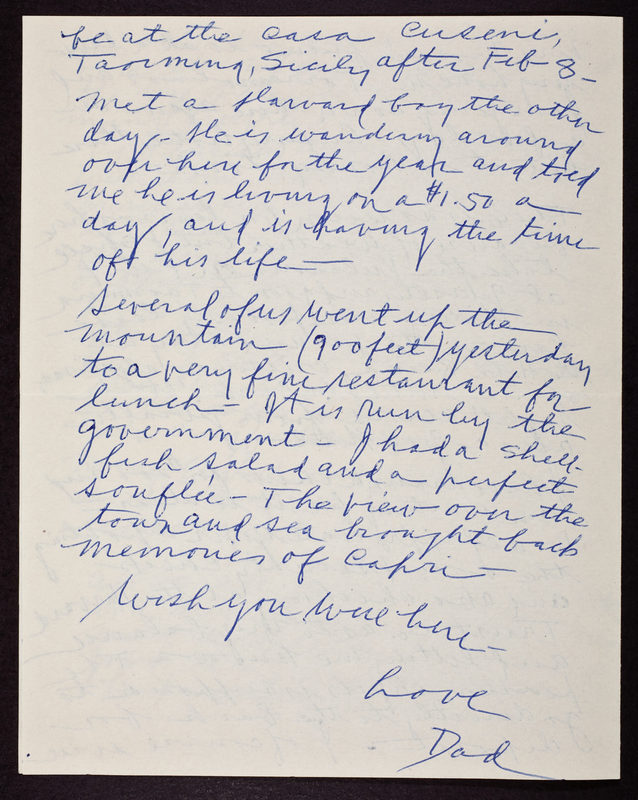 be at the Casa Cuseni,
Taormina, Sicily after Feb 8 -
Met a Harvard boy the other
day - He is wandering around
over here for the year and told
me he is living on a $1.50 a
day, and is having the time
of his life —
Several of us went up the
mountain (900 feet) yesterday
to a very fine restaurant for
lunch - It is run by the
government - I had a shell-
fish salad and a perfect
souflée - The view over the
town and sea brought back
memories of Capri -
Wish you were here -
Love
Dad